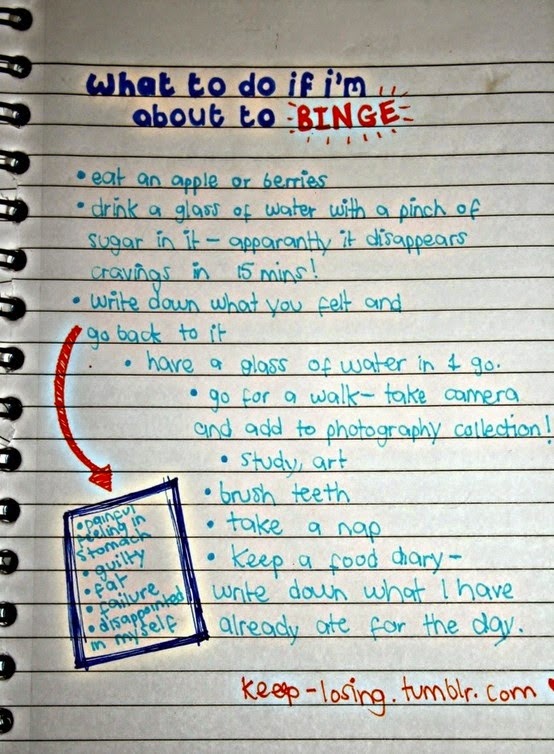 What to do if i'm
about to BINGE
• eat an apple or berries
• drink a glass of water with a pinch of
sugar in it - apparantly it disappears
cravings in 15 mins!
• write down what you felt and
go back to it
• have a glass of water in 1 go.
• go for a walk - take camera
and add to photography collection!
• study, art
• brush teeth
• take a nap
• keep a food diary -
write down what I have
already ate for the day.
• painful
feeling in
stomach
• guilty
• fat
• failure
• disappointed
in myself
keep-losing.tumblr.com